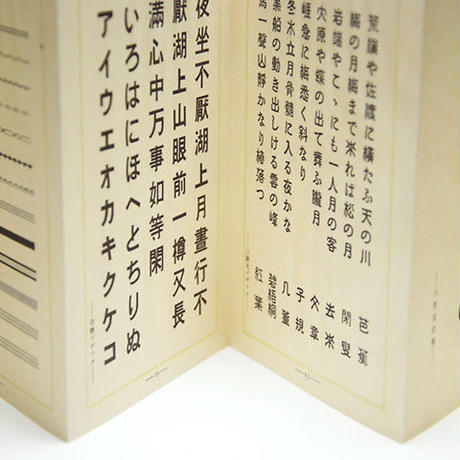 や佐渡に横たふ天の川　芭蕉
梅の月梅まで来れば松の月　閑叟
岩端やこゝにも一人月の客　去来
原や蝶の出て舞ふ朧月
崖急に梅悉く斜なり　子規
冬木立月骨髄に入る夜かな　几董
黒船の動き出しける雲の峰　碧梧桐
一聲山静かなり椿落つ　紅葉
夜坐不厭湖上月晝行不
厭湖上山眼前一樽又長
満心中万事如等閑
いろはにほへとちりぬ
アイウエオカキクケコ